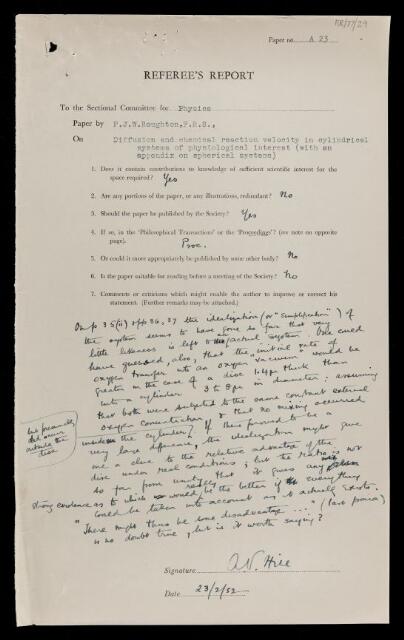 RR/77/29
Paper no. A 23
REFEREE'S REPORT
To the Sectional Committee for Physics
Paper by F.J.W.Roughton,F.R.S.,
On Diffusion and chemical reaction velocity in cylindrical
systems of physiological interest (with an
appendix on spherical systems)
1. Does it contain contributions to knowledge of sufficient scientific interest for the
space required? Yes
2. Are any portions of the paper, or any illustrations, redundant? No
3. Should the paper be published by the Society? Yes
4. If so, in the 'Philosophical Transactions' or the 'Proceedings'? (see note on opposite
page). Proc.
5. Or could it more appropriately be published by some other body? No
6. Is the paper suitable for reading before a meeting of the Society? No
7. Comments or criticisms which might enable the author to improve or correct his
statement. (Further remarks may be attached.)
On p 35(ii) & pp 36, 37 the idealization (or "simplification") of
the system seems to have gone so far that very
little likeness is left to the actual system. One could
have guessed, also, that the initial rate of
oxygen transfer into an oxygen vacuum would be
greater in the case of a disc 1.4μ thick than
into a cylinder 3 to 8μ in diameter: assuming
that both were subjected to the same constant external
oxygen concentration, & that no mixing occurred
inside the cylinder. If there proved to be a
but presumably
did occur
outside the
disc
very large difference, the idealization might give
me a clue to the relative advantage of the
disc under real conditions; but the ratio is not
so far from unity that it gives any
strong evidence as to which would be the better if everything
could be taken into account as it actually exists.
"There might thus be some disadvantage ...." (last para)
is no doubt true, but is it worth saying?
Signature A.V. Hill
Date 23/2/52